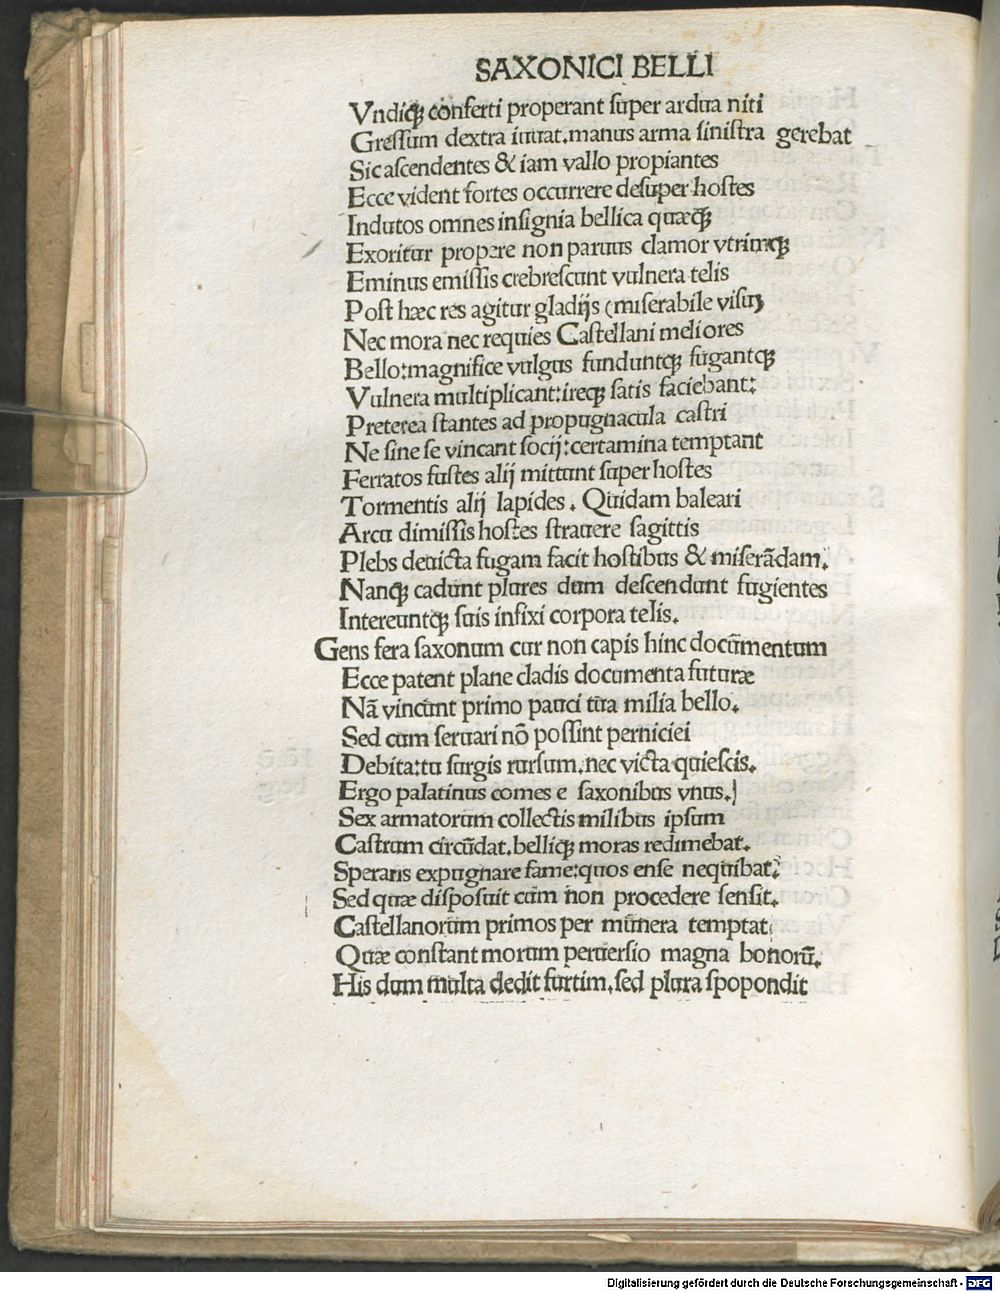 SAXONICI BELLI
Vndiqꝫ conferti properant ſuper ardua niti
Greſſum dextra iuuat.manus arma ſiniſtra gerebat
Sic aſcendentes & iam vallo propiantes
Ecce vident fortes occurrere deſuper hoſtes
Indutos omnes inſignia bellica quæqꝫ
Exoritur propere non paruus clamor vtrimqꝫ
Eminus emiſſis crebreſcunt vulnera telis
Poſt hæc res agitur gladijs (miſerabile viſu)
Nec mora nec requies Caſtellani meliores
Bello:magnifice vulgus funduntqꝫ fugantqꝫ
Vulnera multiplicant:ireqꝫ ſatis faciebant:
Preterea ſtantes ad propugnacula caſtri
Ne ſine ſe vincant ſocij:certamina temptant
Ferratos fuſtes alij mittunt ſuper hoſtes
Tormentis alij lapides. Quidam baleari
Arcu dimiſſis hoſtes ſtrauere ſagittis
Plebs deuicta fugam facit hoſtibus & miſerādam.
Nanqꝫ cadunt plures dum deſcendunt fugientes
Intereuntqꝫ ſuis infixi corpora telis.
Gens fera ſaxonum cur non capis hinc documentum
Ecce patent plane cladis documenta futuræ
Nā vincunt primo pauci tua milia bello.
Sed cum ſeruari nō poſſint perniciei
Debita:tu ſurgis rurſum.nec victa quieſcis.
Ergo palatinus comes e ſaxonibus vnus.
Sex armatorum collectis milibus ipſum
Caſtrum circūdat.belliqꝫ moras redimebat.
Sperans expugnare fame:quos enſe nequibat.
Sed quæ diſpoſuit cum non procedere ſenſit.
Caſtellanorum primos per munera temptat
Quæ conſtant morum peruerſio magna bonorū.
His dum multa dedit furtim.ſed plura ſpopondit
Digitalisierung gefördert durch die Deutsche Forschungsgemeinschaft - DFG